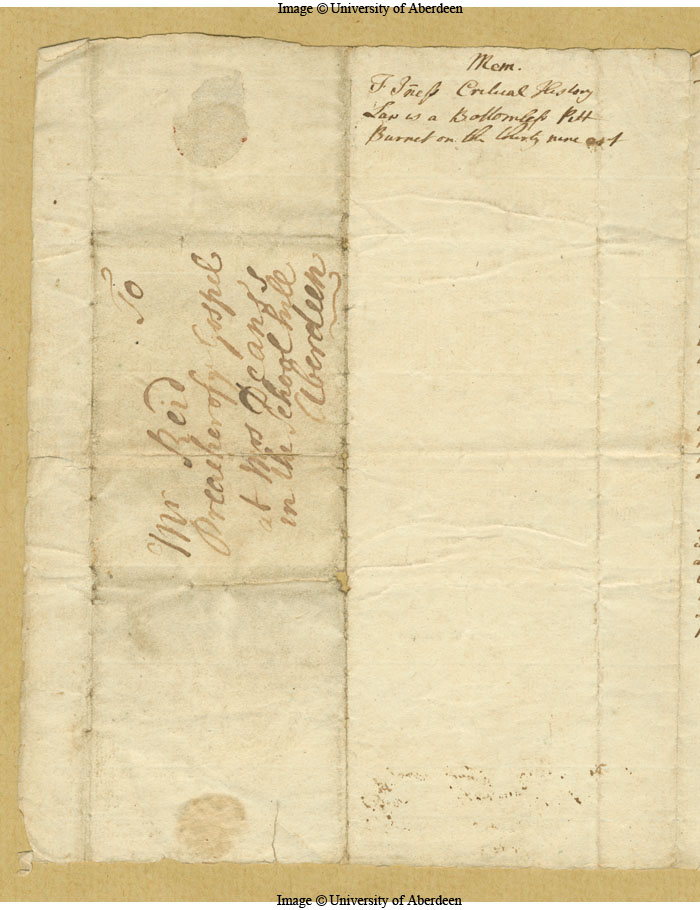 Image © University of Aberdeen
Mem.
F Iñess Critical History
Law is a Bottomless Pitt
Burnet on the thirty nine art
To
Mr Reid
Preacher of ye Gospel
at Mrs
in the School hill
Aberdeen
Image © University of Aberdeen